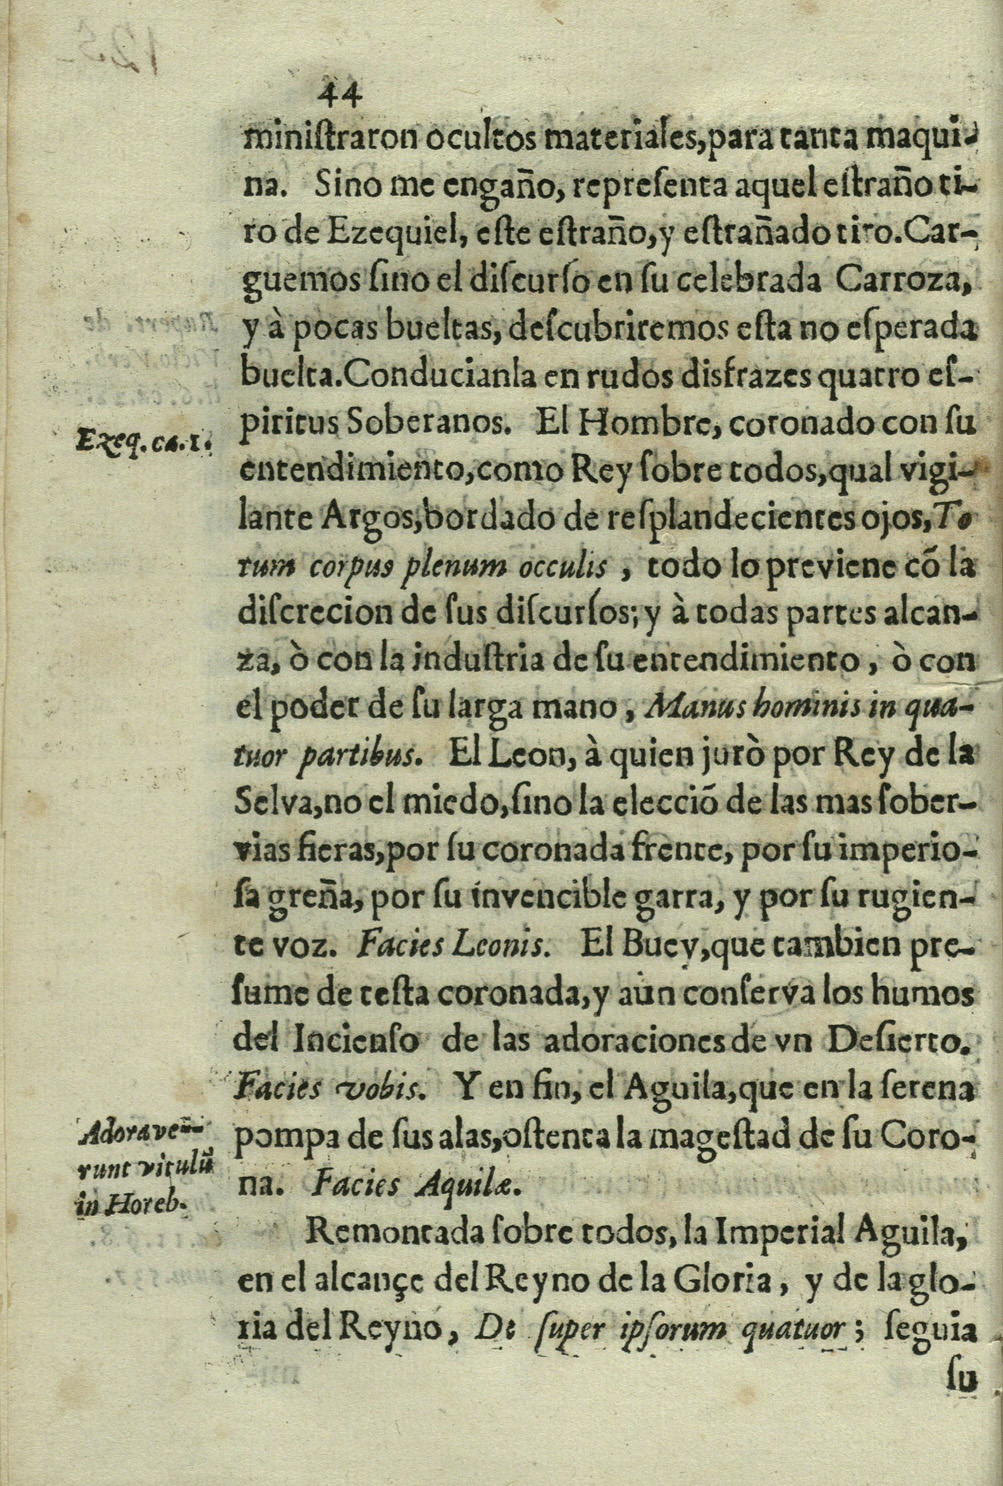 44
miniſtraron ocultos materiales,para tanta maqui-
na. Sino me engaño, repreſenta aquel eſtraño ti-
ro de Ezequiel, eſte eſtraño,y eſtrañado tiro.Car-
guemos ſino el diſcurſo en ſu celebrada Carroza,
y à pocas bueltas, deſcubriremos eſta no eſperada
buelta.Conducianla en rudos disfrazes quatro eſ-
piritus Soberanos. El Hombre, coronado con ſu
Ezeq. ca. 1.
entendimiento,como Rey ſobre todos,qual vigi-
lante Argos,bordado de reſplandecientes ojos,To
tum corpus plenum occulis , todo lo previene cõ la
diſcrecion de ſus diſcurſos; y à todas partes alcan-
za, ò con la induſtria de ſu entendimiento , ò con
el poder de ſu larga mano , Manus hominis in qua-
tuor partibus. El Leon, à quien jurò por Rey de la
Selva,no el miedo,ſino la elecciõ de las mas ſober-
vias fieras,por ſu coronada frente, por ſu imperio-
ſa greña, por ſu invencible garra, y por ſu rugien-
te voz. Facies Leonis. El Buey,que tambien pre-
ſume de teſta coronada,y aun conſerva los humos
del Incienſo de las adoraciones de vn Deſierto.
Facies vobis. Y en fin, el Aguila,que en la ſerena
Adoraveñ-
runt vitulũ
in Horeb.
pompa de ſus alas,oſtenta la mageſtad de ſu Coro-
na. Facies Aquilæ.
Remontada ſobre todos, la Imperial Aguila,
en el alcançe del Reyno de la Gloria , y de la glo-
ria del Reyno, De ſuper ipſorum quatuor ; ſeguia
ſu